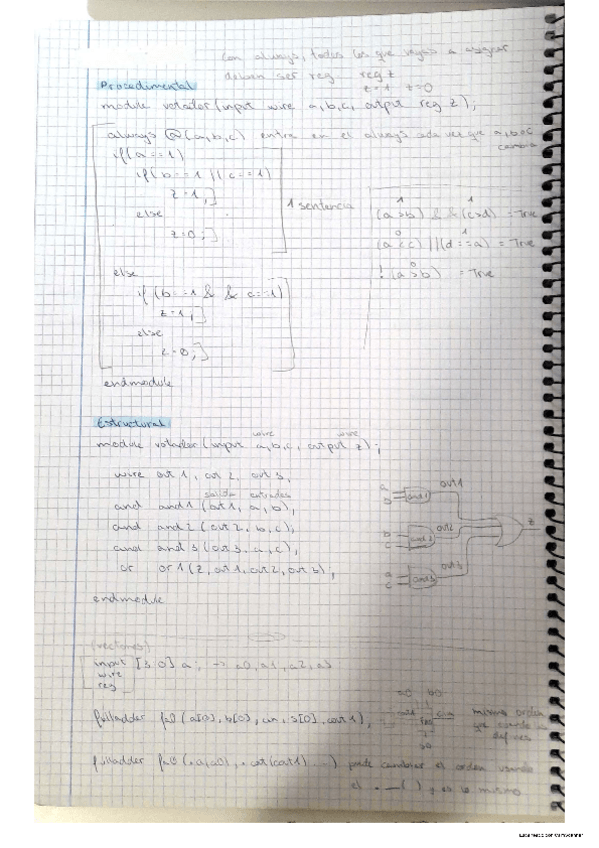 Con always, todos los que vayas a asignar
deben ser reg. reg z
z=1 z=0
Procedimental
module votador (input wire a,b,c, output reg z);
always @(a,b,c) entra en el always cada vez que a,b o c
cambia
if(a==1)
if(b==1 || c==1)
z=1;
else
z=0;
1 sentencia
1 1
(a>b) && (c>d) = True
0 1
(a<c) ||(d==a) = True
0
!(a>b) = True
else
if (b==1 && c==1)
z=1;
else
z=0;
endmodule
Estructural
wire wire
module votador (input a,b,c, output z);
wire out1, out2, out3;
salida entradas
and and1 (out1, a, b);
and and2 (out2, b, c);
and and3 (out3, a, c);
or or1 (z, out1, out2, out3);
endmodule
a
b
and1
out1
b
c
and2
out2
a
c
and3
out3
z
(vectores)
input [3:0] a; -> a0, a1, a2, a3
wire
reg
fulladder fa0 (a[0], b[0], cin, s[0], cout1);
a0 b0
cin
s0
mismo orden
que cuando lo
defines
fulladder fa0 (.a(a0), .cout(cout1) ...) puede cambiar el orden usando
el .__() y es lo mismo